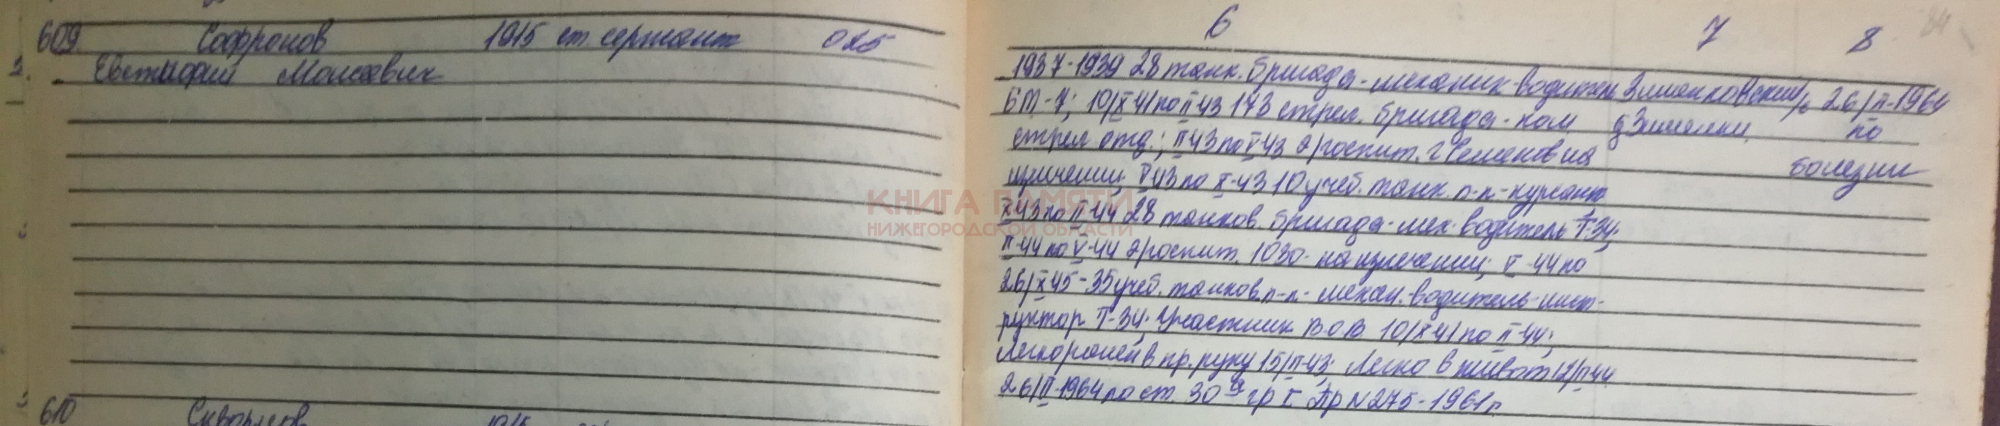 609 Софронов 1915 ст. сержант 025
Евстифий Моисеевич
610 Скворцов 1915
6 7 8
1937-1939 28 танк. бригада - механик-водитель Зименковский с/с 26/II-1964
БТ-7; 10/X 41 по II 43 173 стрел. бригада - ком. д Зименки по
стрел. отд.; II 43 по V 43 э/госпит. г на болезни
излечении; V 43 по X-43 10 учеб. танк. п-п - курсант
X 43 по II-44 28 танков. бригада - мех. водитель Т-34;
КНИГА ПАМЯТИ
НИЖЕГОРОДСКОЙ ОБЛАСТИ
II-44 по V-44 э/госпит. 1030 - на излечении; V-44 по
26/IX 45 - 35 учеб. танков. п-п - механ. водитель-инст-
руктор Т-34. Участник ВОВ 10/X 41 по II-44;
Легко ранен в пр. руку 15/II-43; Легко в живот 12/II 44
26/II-1964 по ст. 30 а гр I Пр N 275 - 1961 г